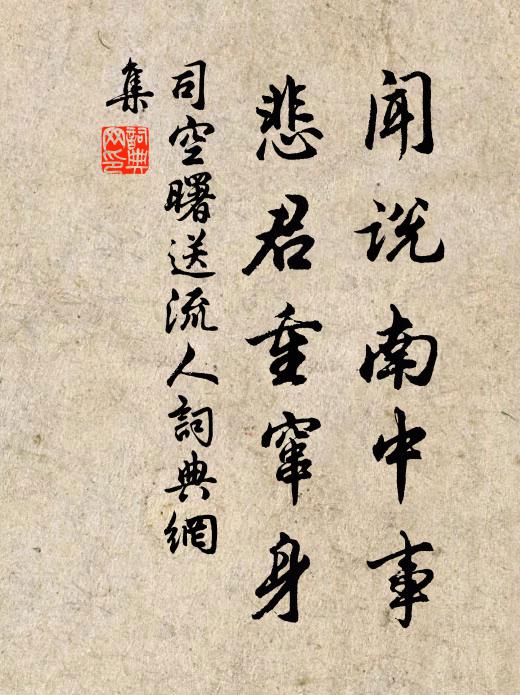 闻说南中事
悲君重窜身
司空曙送流人詞典網
集
詞典
网印